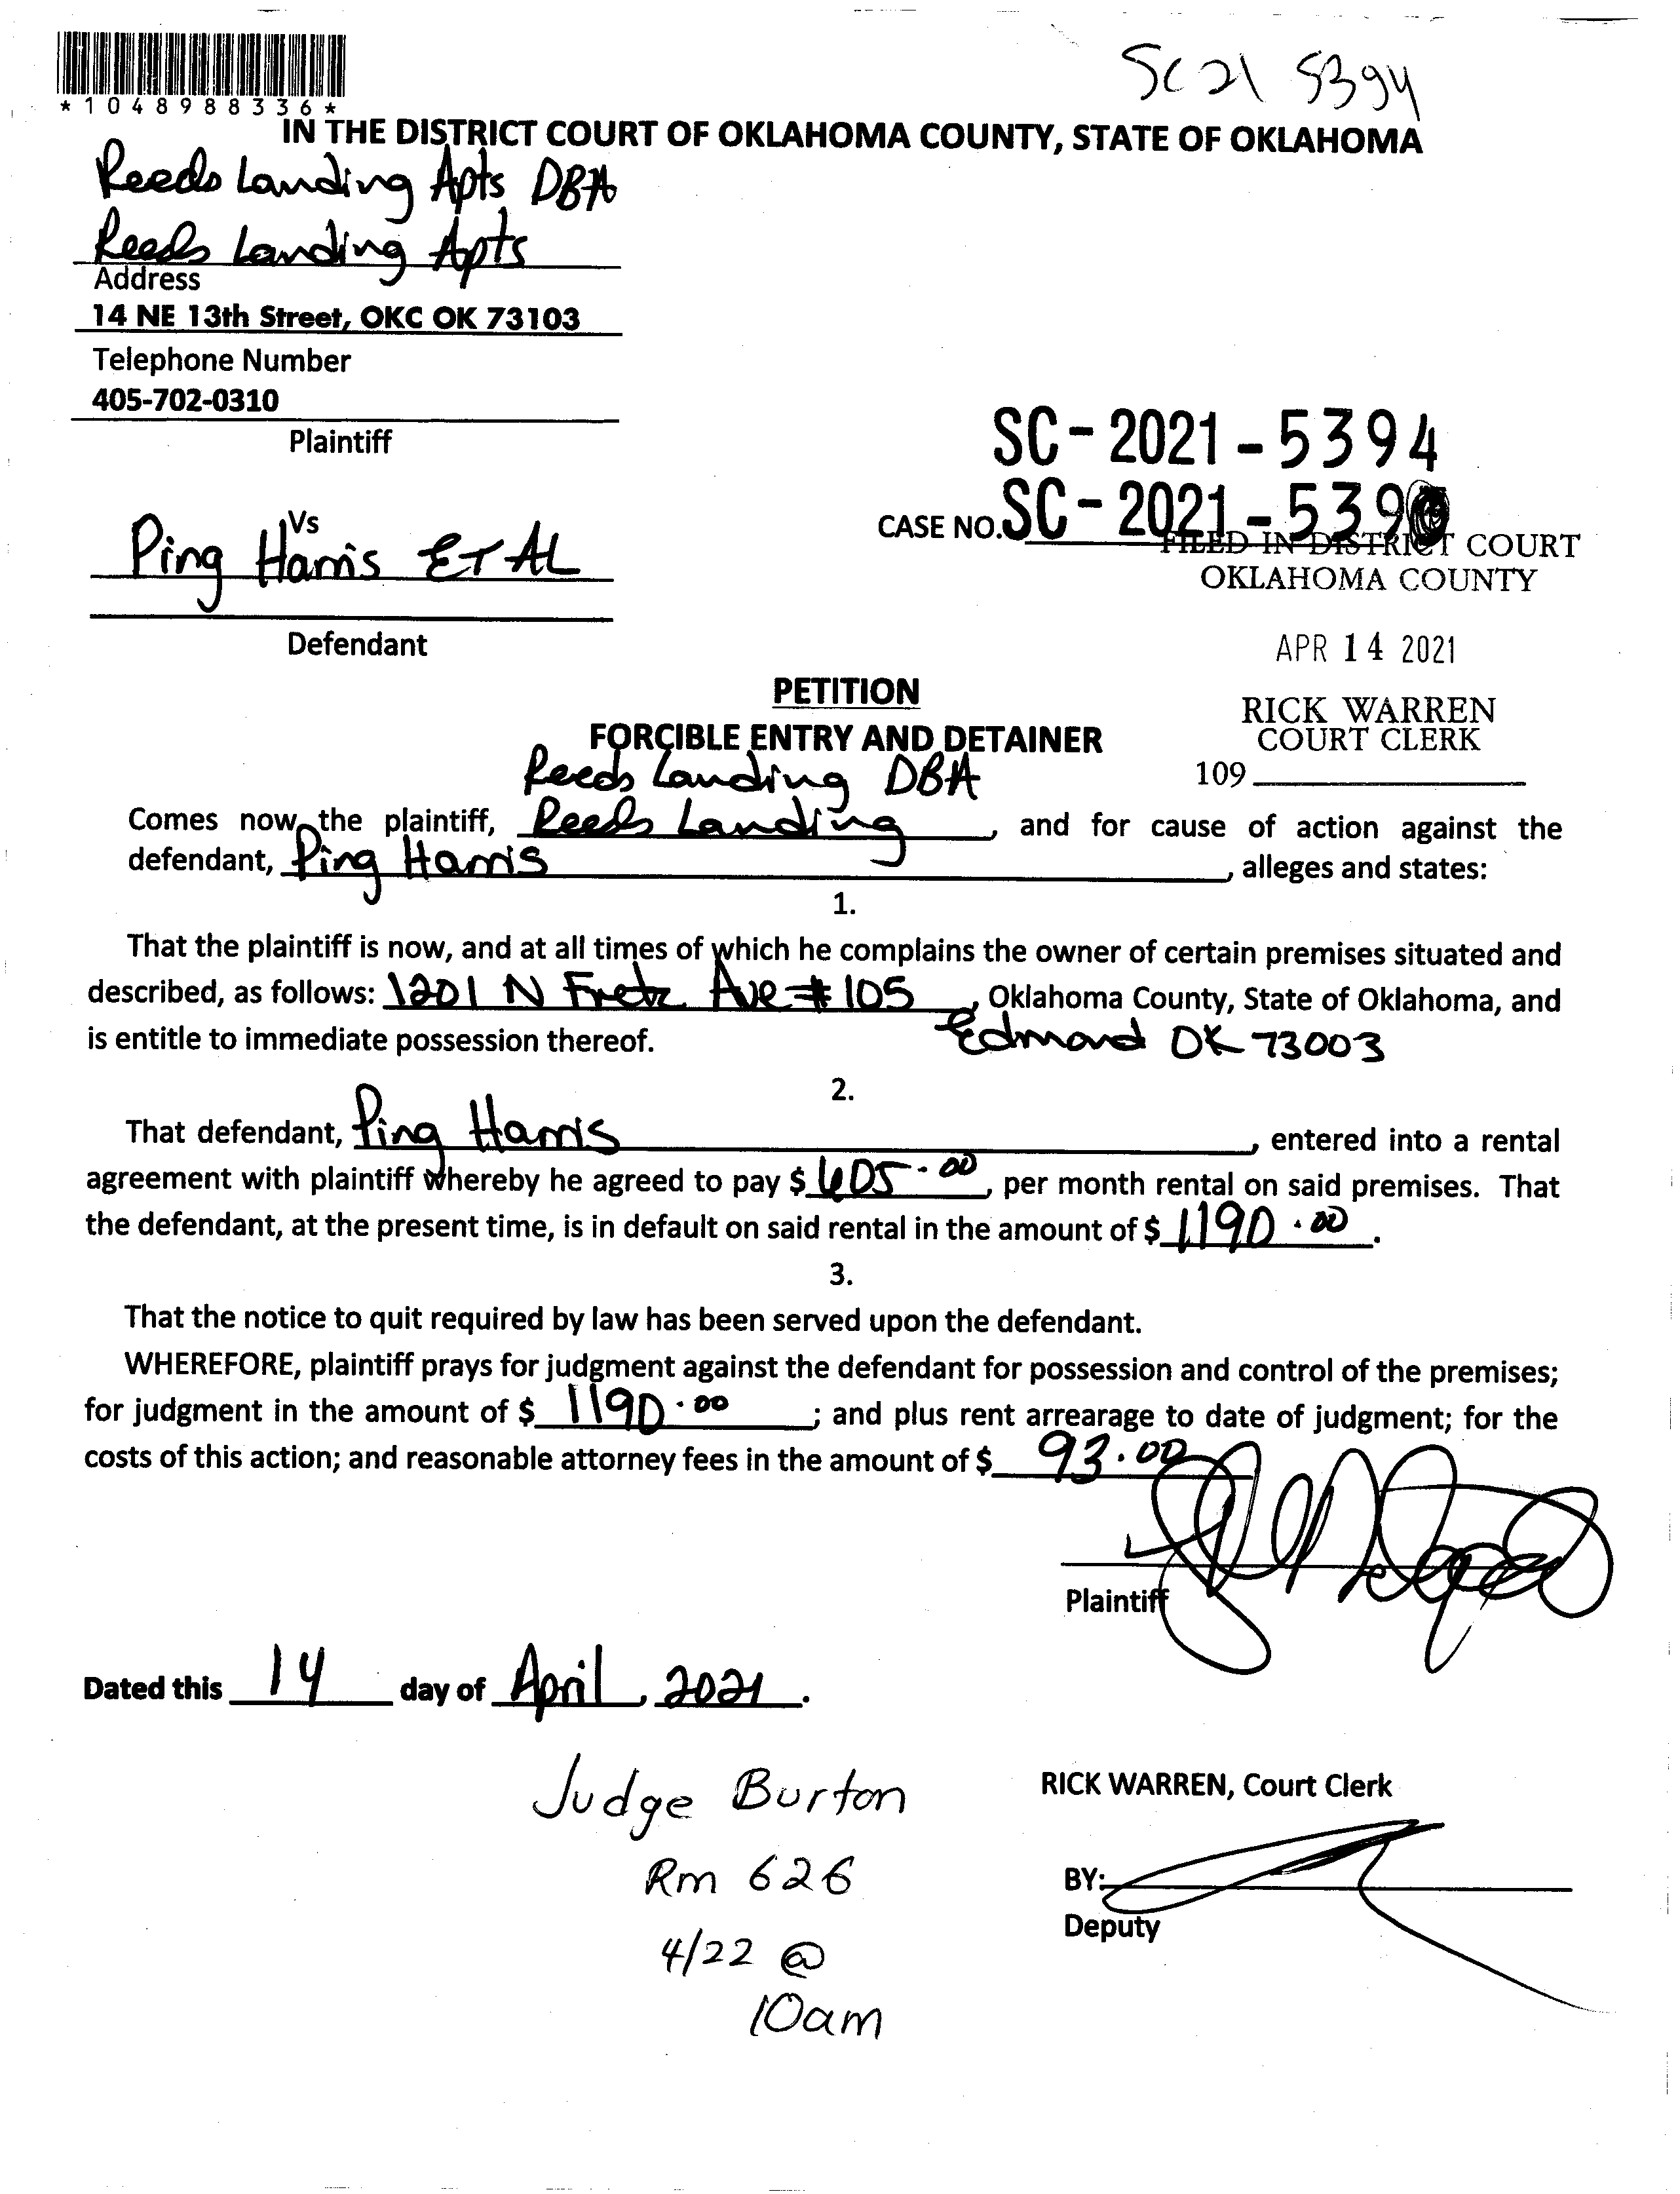 SC 21 5394
*1048988336*
IN THE DISTRICT COURT OF OKLAHOMA COUNTY, STATE OF OKLAHOMA
Reeds Landing Apts DBA
Reeds Landing Apts
Address
14 NE 13th Street, OKC OK 73103
Telephone Number
405-702-0310
Plaintiff
SC-2021-5394
CASE NO. SC-2021-539
Vs
Ping Harris ET AL
Defendant
FILED IN DISTRICT COURT
OKLAHOMA COUNTY
APR 14 2021
RICK WARREN
COURT CLERK
109
PETITION
FORCIBLE ENTRY AND DETAINER
Reeds Landing DBA
Comes now the plaintiff, Reeds Landing, and for cause of action against the
defendant, Ping Harris, alleges and states:
1.
That the plaintiff is now, and at all times of which he complains the owner of certain premises situated and
described, as follows: 1201 N Fretz Ave #105, Oklahoma County, State of Oklahoma, and
is entitle to immediate possession thereof. Edmond OK 73003
2.
That defendant, Ping Harris, entered into a rental
agreement with plaintiff whereby he agreed to pay $ 605.00, per month rental on said premises. That
the defendant, at the present time, is in default on said rental in the amount of $ 1190.00.
3.
That the notice to quit required by law has been served upon the defendant.
WHEREFORE, plaintiff prays for judgment against the defendant for possession and control of the premises;
for judgment in the amount of $ 1190.00; and plus rent arrearage to date of judgment; for the
costs of this action; and reasonable attorney fees in the amount of $ 93.00
Plaintiff
Dated this 14 day of April, 2021.
Judge Burton
Rm 626
4/22 @
10am
RICK WARREN, Court Clerk
BY:
Deputy